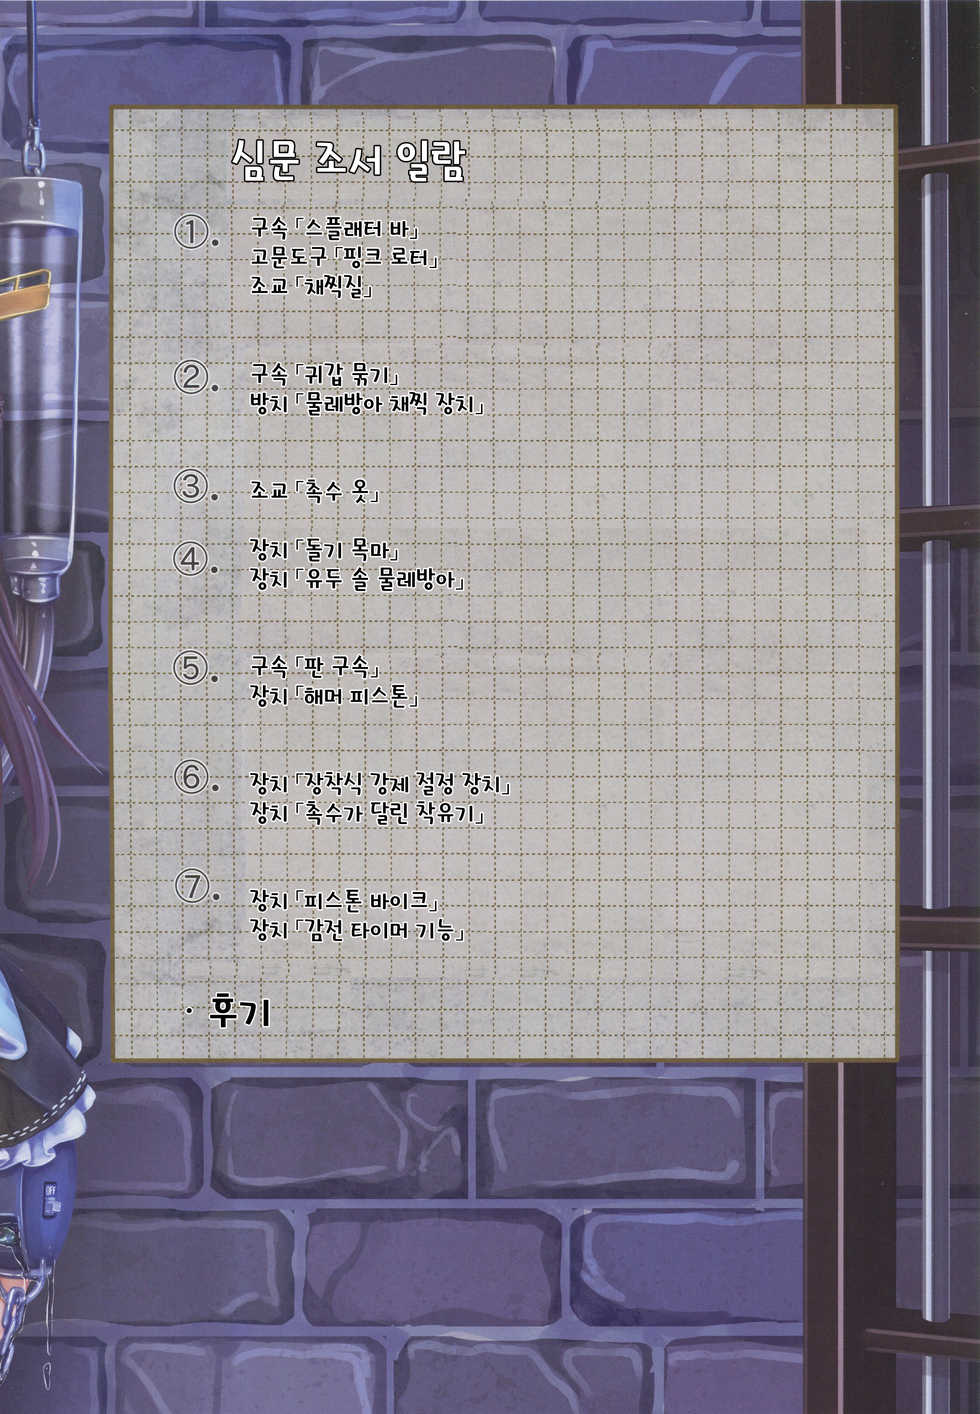 심문 조서 일람
①. 구속 「스플래터 바」
고문도구 「핑크 로터」
조교 「채찍질」
②. 구속 「귀갑 묶기」
방치 「물레방아 채찍 장치」
③. 조교 「촉수 옷」
④. 장치 「돌기 목마」
장치 「유두 솔 물레방아」
⑤. 구속 「판 구속」
장치 「해머 피스톤」
⑥. 장치 「장착식 강제 절정 장치」
장치 「촉수가 달린 착유기」
⑦. 장치 「피스톤 바이크」
장치 「감전 타이머 기능」
· 후기
OFF